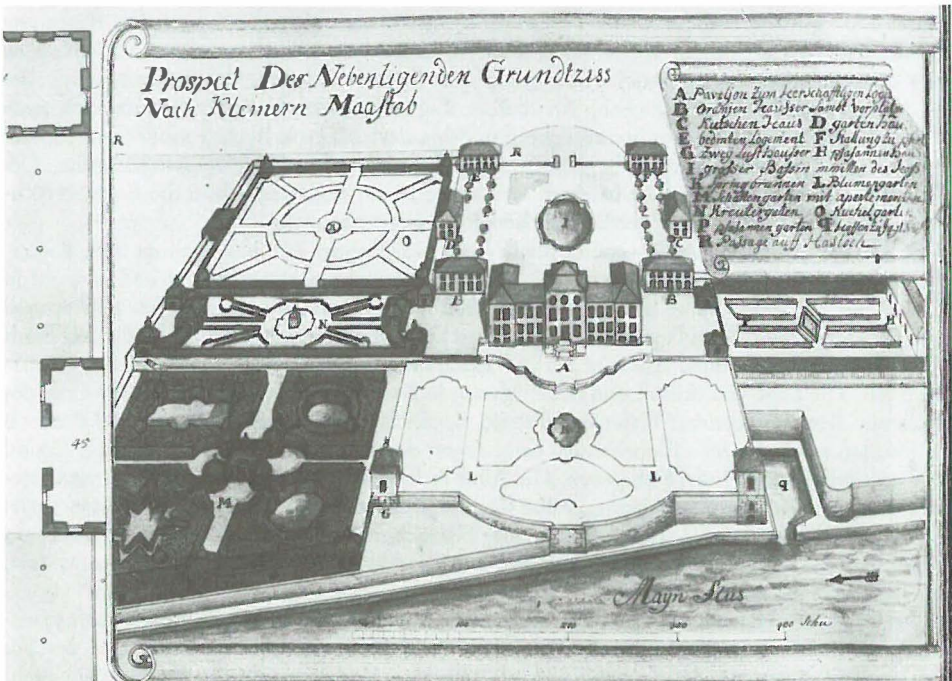 Prospect Der Nebenligenden Grundtziss
Nach Kleinern Maastab
A Pavilion Zum Herrschafftigen Logi
B Oranien Heusser Samt Vorplatz
C Kutschen Haus D garten Hau
E beamten Logement F Stalung Zu
G Zweÿ lust Heusser H phasannen
I grosser Bassein mmitten des
K springbrunnen L Blumengarten
M Schattengarten mit
N Kreutergarten O Kuchel garten
P phasannen garten q
R Passage auff Hasloch
R
R
I
O
O
D
C
B
B
N
H
A
45
K
L
L
M
G
q
Mayn Flus
100
200
300
400 Schu